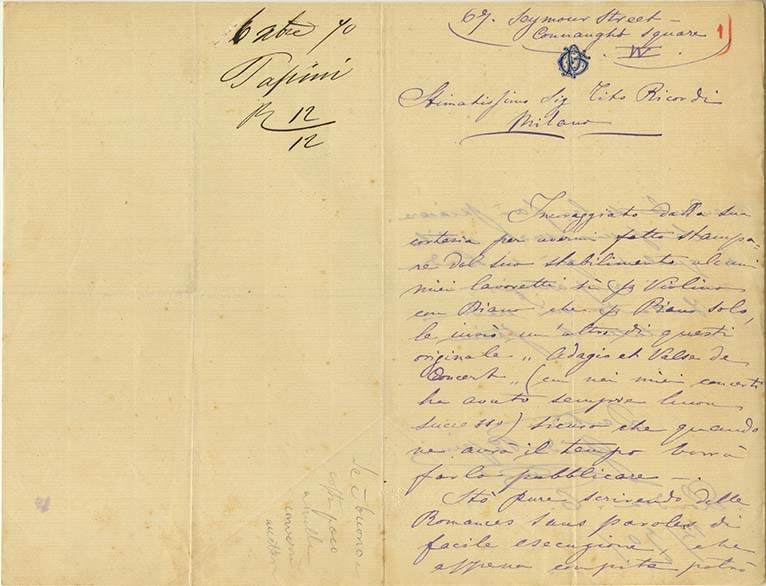 6 xbre 70
Papini
R 12/12
67. Seymour Street -
Connaught Square
. W .
1
Stimatissimo Sig Tito Ricordi
Milano
Incoraggiato dalla sua
cortesia per avermi fatto stampa-
re dal suo stabilimento alcuni
miei lavoretti sì p Violino
con Piano che p Piano solo,
le invio un'altro di questi
originale „ Adagio et Valse de
Concert „ (che nei miei concerti
ha avuto sempre buon
successo) sicuro che quando
ne avrà il tempo vorrà
farlo pubblicare -.
Stò pure scrivendo delle
Romances sans paroles di
facile esecuzione, che
appena compite potrò
Se è buono